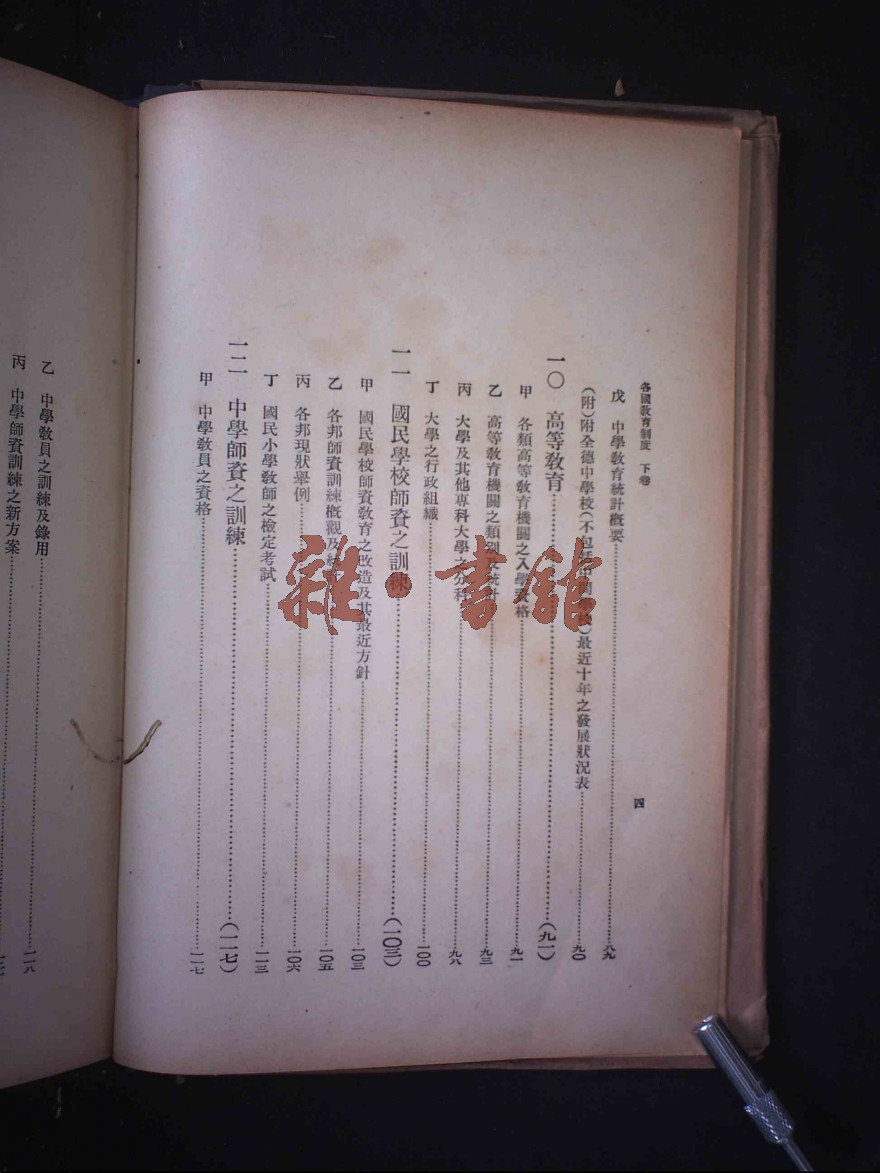 各國教育制度 下卷
四
戊 中學教育統計概要……八九
(附)附全德中學校(不包括中間學校)最近十年之發展狀況表……九〇
一〇 高等教育……(九一)
甲 各類高等教育機關之入學資格……九一
乙 高等教育機關之類別及統計……九三
丙 大學及其他專科大學之分科……九八
丁 大學之行政組織……一〇〇
一一 國民學校師資之訓練……(一〇三)
甲 國民學校師資教育之改造及其最近方針……一〇三
乙 各邦師資訓練概觀及統計……一〇五
丙 各邦現狀舉例……一〇六
丁 國民小學教師之檢定考試……一一三
一二 中學師資之訓練……(一一七)
甲 中學教員之資格……一一七
乙 中學教員之訓練及錄用……一一八
丙 中學師資訓練之新方案……
雜·書館